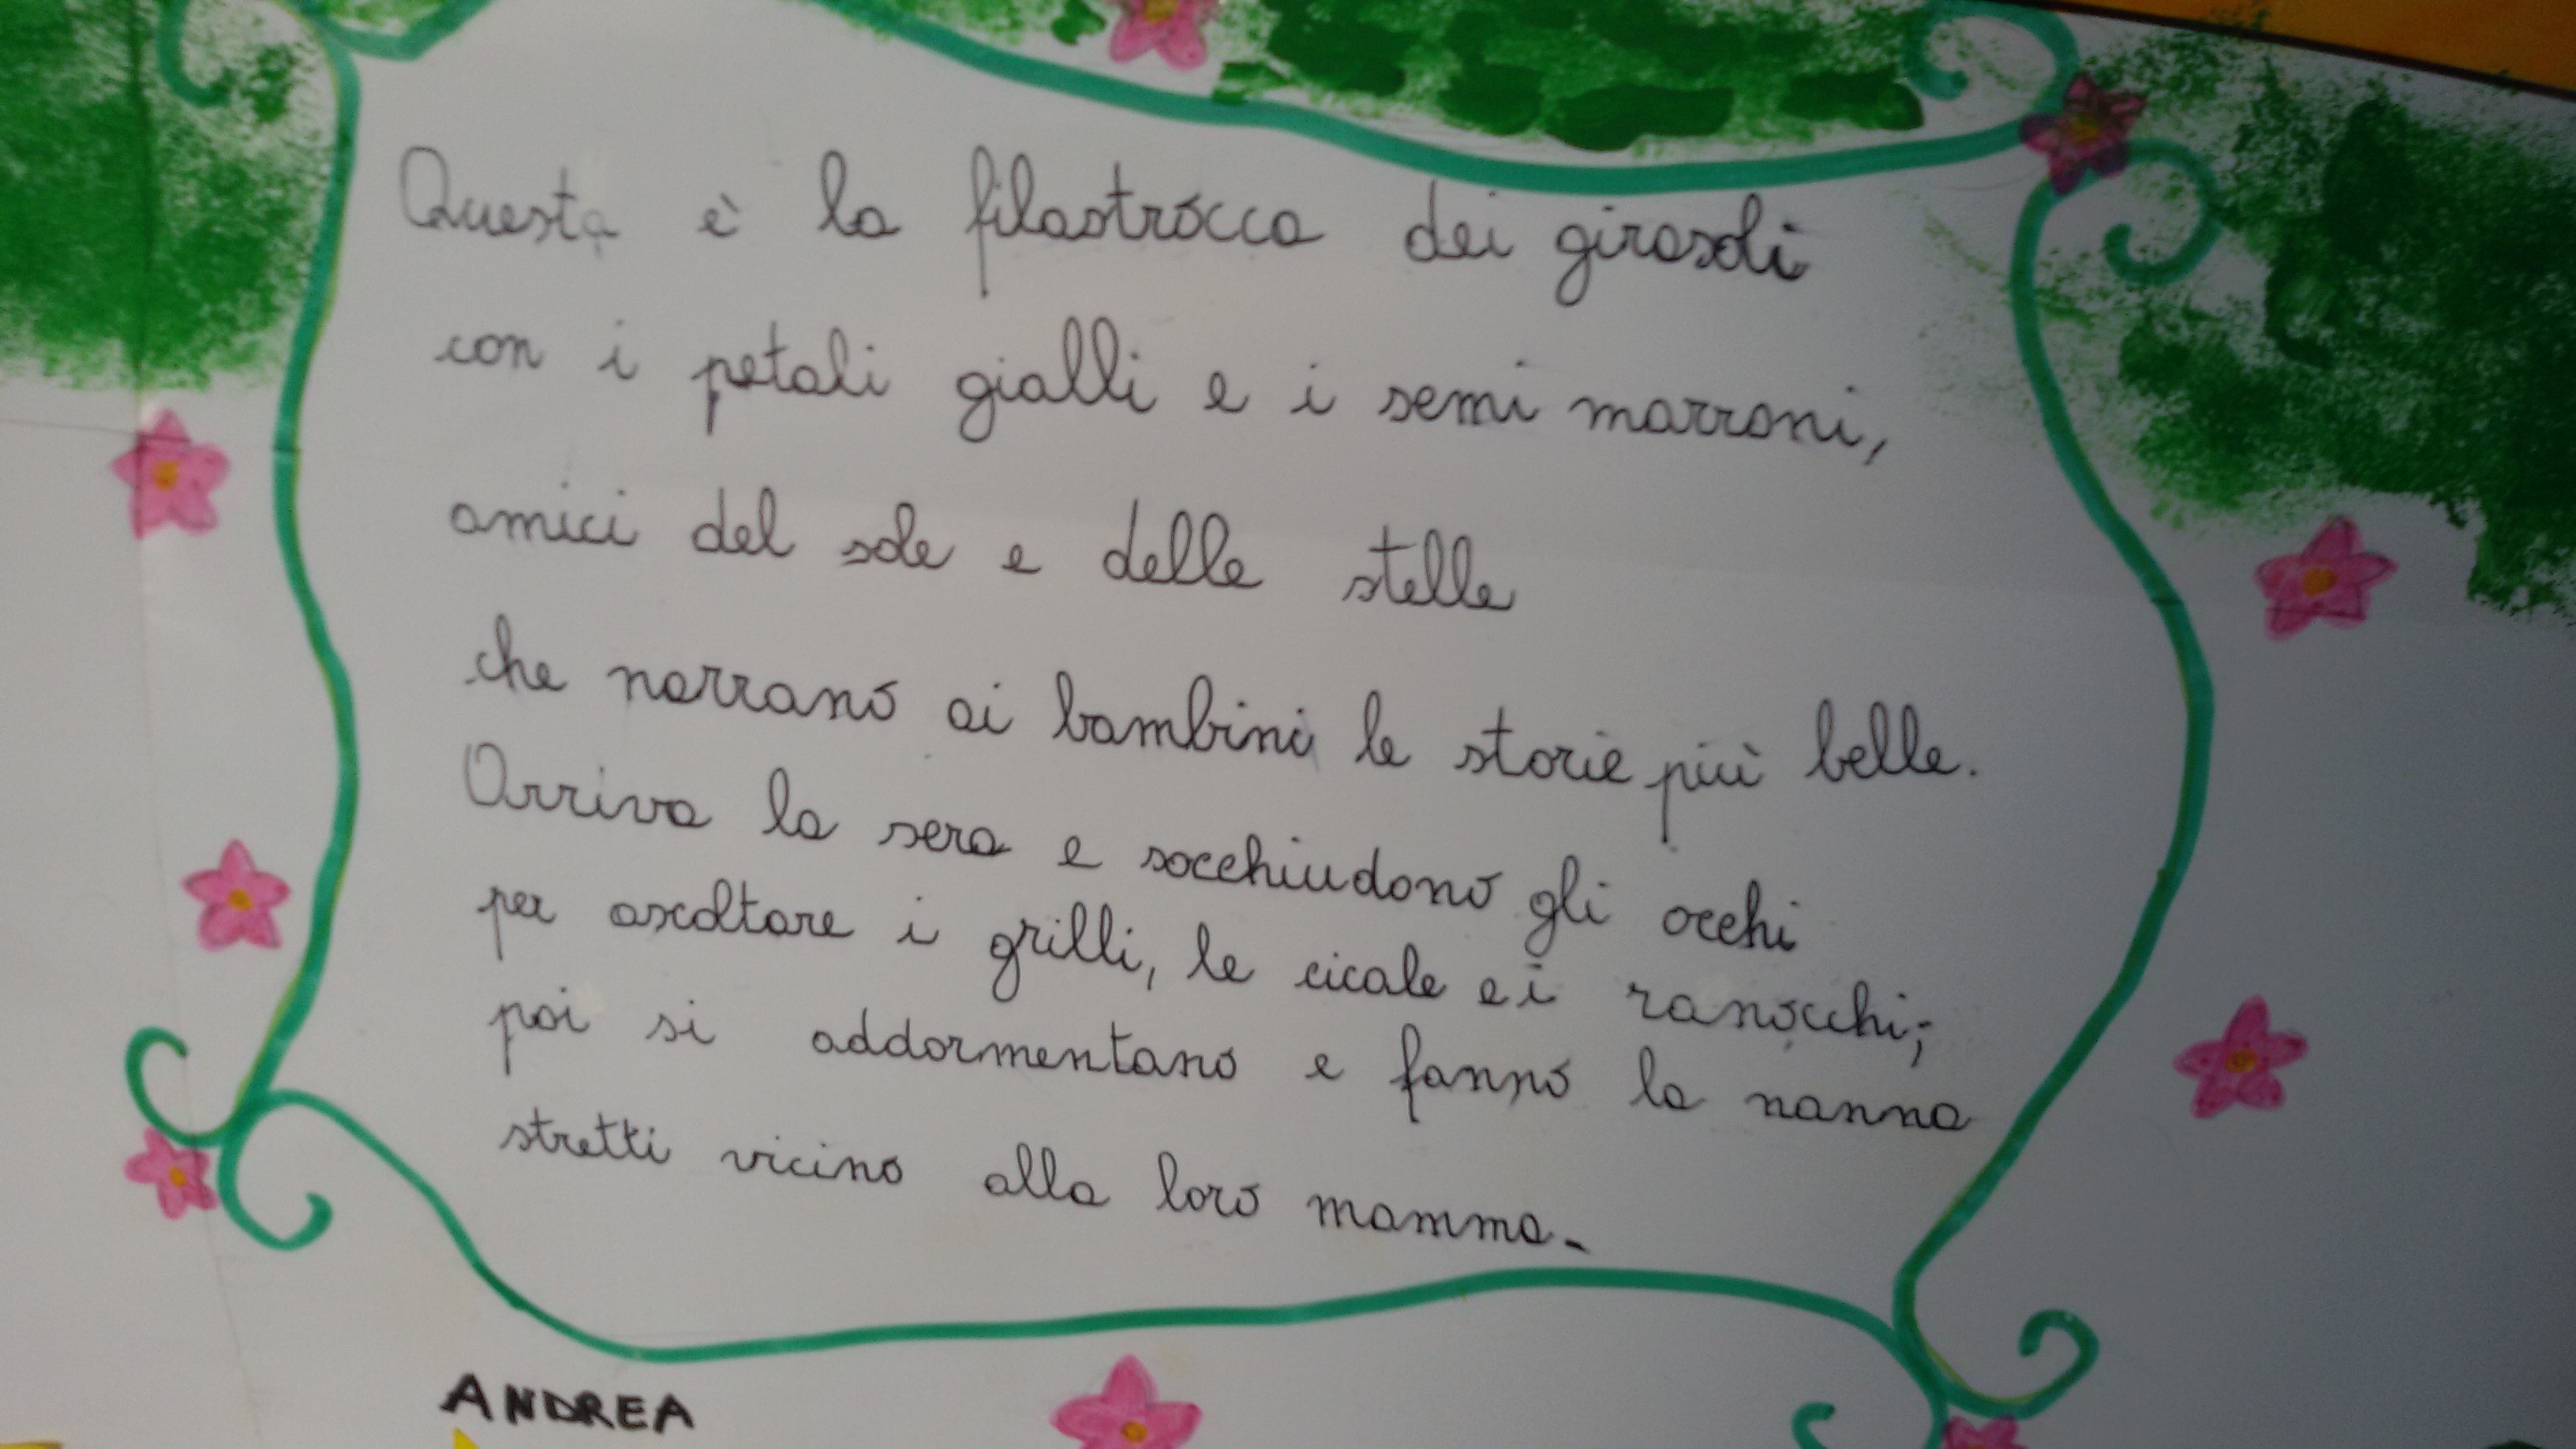 Questa è la filastrocca dei girasoli
con i petali gialli e i semi marroni,
amici del sole e delle stelle
che narrano ai bambini le storie più belle.
Arriva la sera e socchiudono gli occhi
per ascoltare i grilli, le cicale e i ranocchi;
poi si addormentano e fanno la nanna
stretti vicino alla loro mamma.
ANDREA